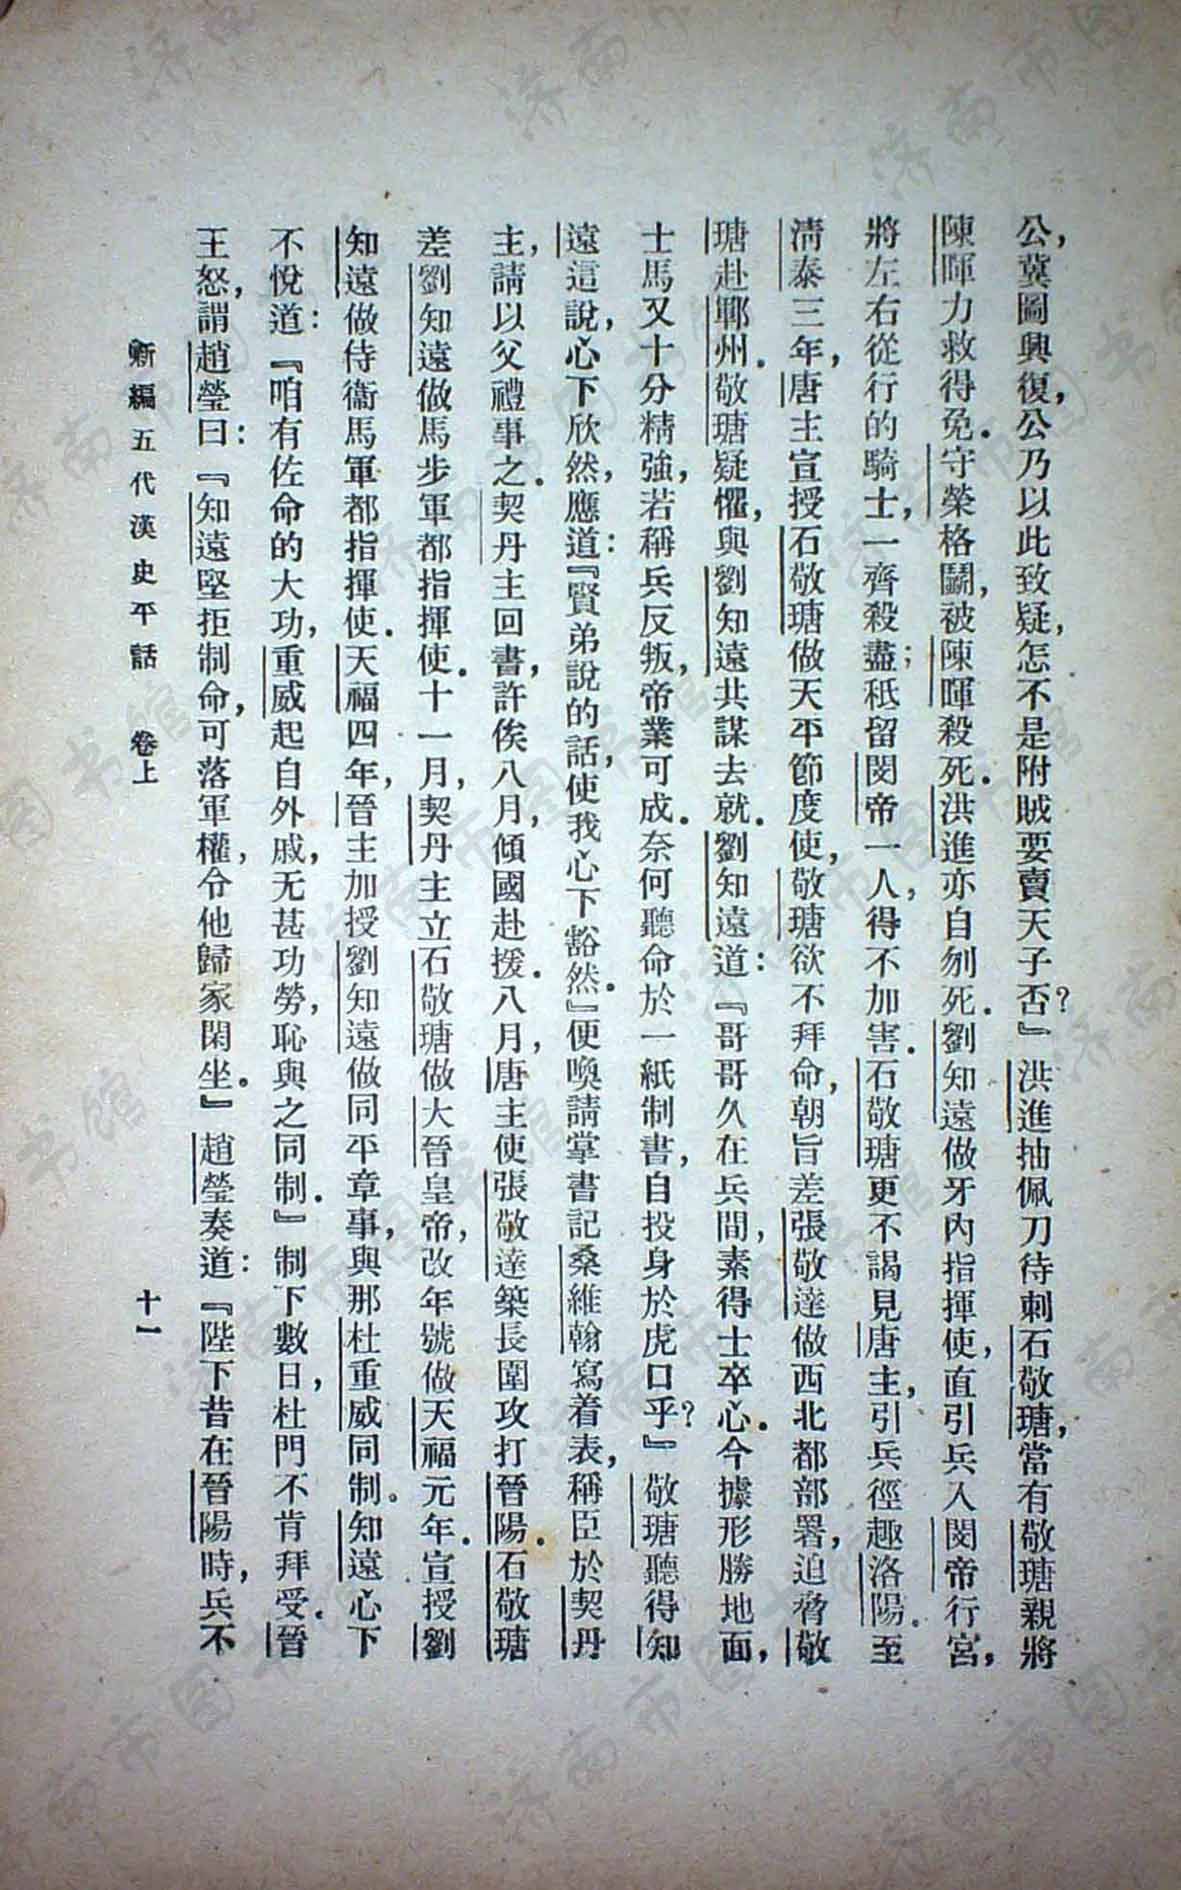 公，冀圖興復，公乃以此致疑，怎不是附賊要賣天子否？』洪進抽佩刀待刺石敬瑭，當有敬瑭親將
陳暉力救得免。守榮格鬭，被陳暉殺死。洪進亦自刎死。劉知遠做牙內指揮使，直引兵入閔帝行宮，
將左右從行的騎士，一齊殺盡；秪留閔帝一人，得不加害。石敬瑭更不謁見唐主，引兵徑趣洛陽。至
清泰三年，唐主宣授石敬瑭做天平節度使，敬瑭欲不拜命，朝旨差張敬達做西北都部署，迫脅敬
瑭赴鄆州。敬瑭疑懼，與劉知遠共謀去就。劉知遠道：『哥哥久在兵間，素得士卒心。今據形勝地面，
士馬又十分精強，若稱兵反叛，帝業可成。奈何聽命於一紙制書，自投身於虎口乎？』敬瑭聽得知
遠這說，心下欣然，應道：『賢弟說的話，使我心下豁然。』便喚請掌書記桑維翰寫着表，稱臣於契丹
主，請以父禮事之。契丹主回書，許俟八月，傾國赴援。八月，唐主使張敬達築長圍攻打晉陽。石敬瑭
差劉知遠做馬步軍都指揮使。十一月，契丹主立石敬瑭做大晉皇帝，改年號做天福元年。宣授劉
知遠做侍衞馬軍都指揮使。天福四年，晉主加授劉知遠做同平章事，與那杜重威同制。知遠心下
不悅道：『咱有佐命的大功，重威起自外戚，无甚功勞，恥與之同制。』制下數日，杜門不肯拜受。晉
王怒，謂趙瑩曰：『知遠堅拒制命，可落軍權，令他歸家閑坐。』趙瑩奏道：『陛下昔在晉陽時，兵不
新編五代漢史平話 卷上 十一
济南市图书馆